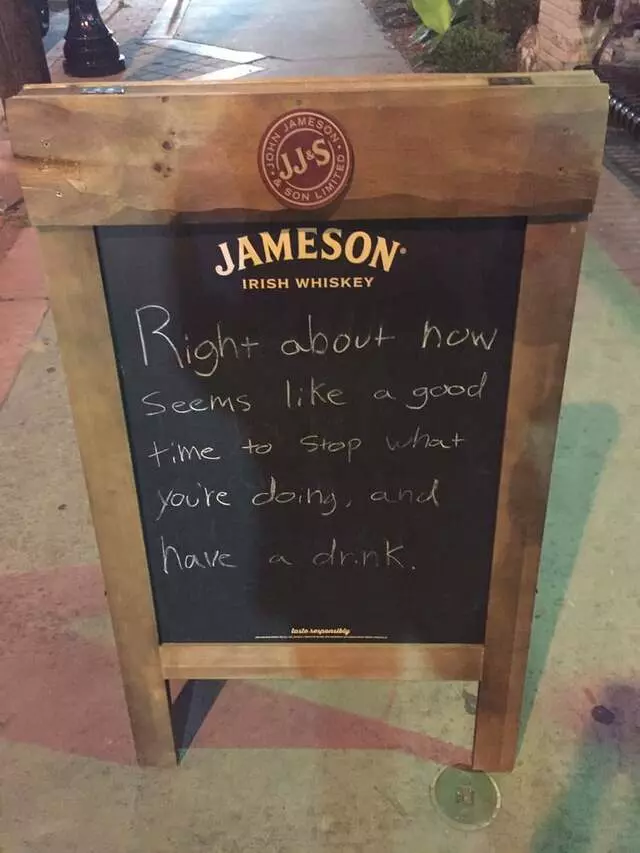 JOHN JAMESON
JJ&S
& SON LIMITED
JAMESON
IRISH WHISKEY
Right about now
seems like a good
time to stop what
you're doing, and
have a drink.
taste responsibly